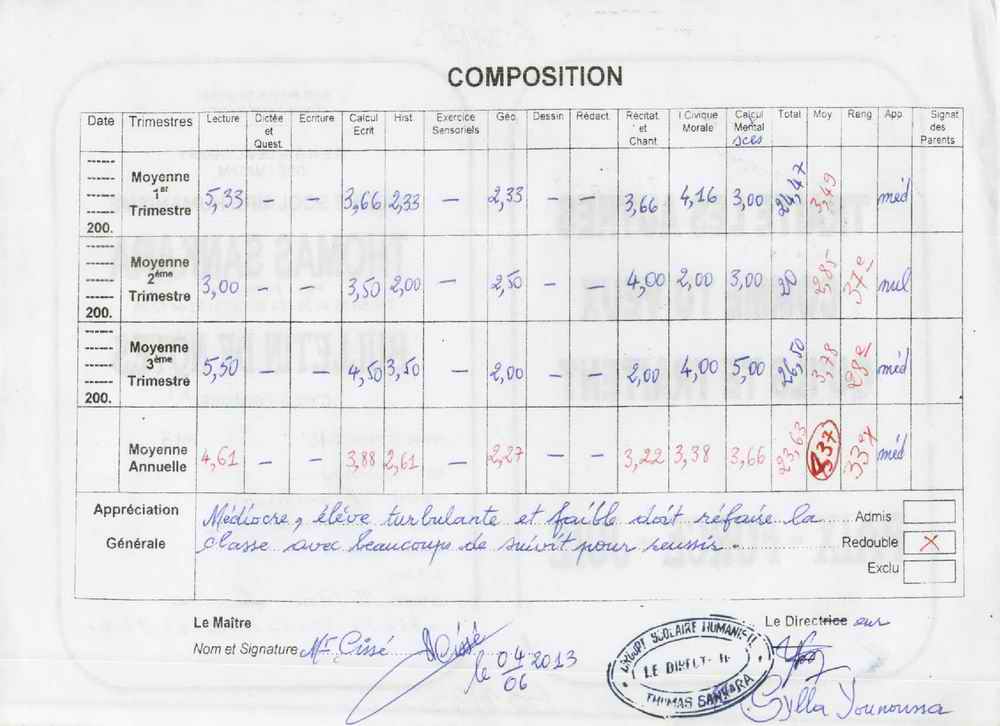 COMPOSITION
Date Trimestres Lecture Dictée et Quest. Ecriture Calcul Ecrit Hist. Exercice Sensoriels Géo. Dessin Rédact. Récitat° et Chant. I Civique Morale Calcul Mental sces Total Moy Rang App Signat des Parents
200. Moyenne 1er Trimestre 5,33 – – 3,66 2,33 – 2,33 – – 3,66 4,16 3,00 24,47 3,49 méd
200. Moyenne 2ème Trimestre 3,00 – – 3,50 2,00 – 2,50 – – 4,00 2,00 3,00 20 2,85 37e nul
200. Moyenne 3ème Trimestre 5,50 – – 4,50 3,50 – 2,00 – – 2,00 4,00 5,00 26,50 3,78 28e méd
Moyenne Annuelle 4,61 – – 3,88 2,61 – 2,27 – – 3,22 3,38 3,66 23,63 3,37 33e méd
Appréciation Générale
Médiocre, élève turbulante et faible doit réfaire la
classe avec beaucoups de suivit pour reussir.
Admis
Redouble X
Exclu
Le Maître
Nom et Signature Mr Cissé
le 04 06 2013
GROUPE SCOLAIRE
LE DIRECT
THOMAS SANKARA
Le Directrice eur
Sylla Younoussa